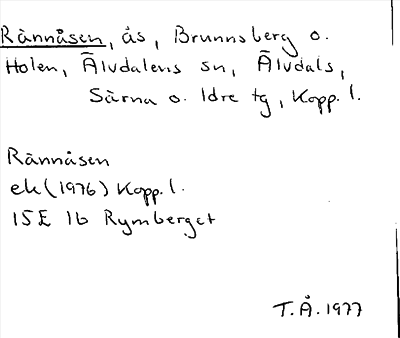 Rännåsen, ås, Brunnsberg o.
Holen, Älvdalens sn, Älvdals,
Särna o. Idre tg, Kopp. l.
Rännåsen
ek (1976) Kopp. l.
15E 1b Rymberget
T.Å. 1977